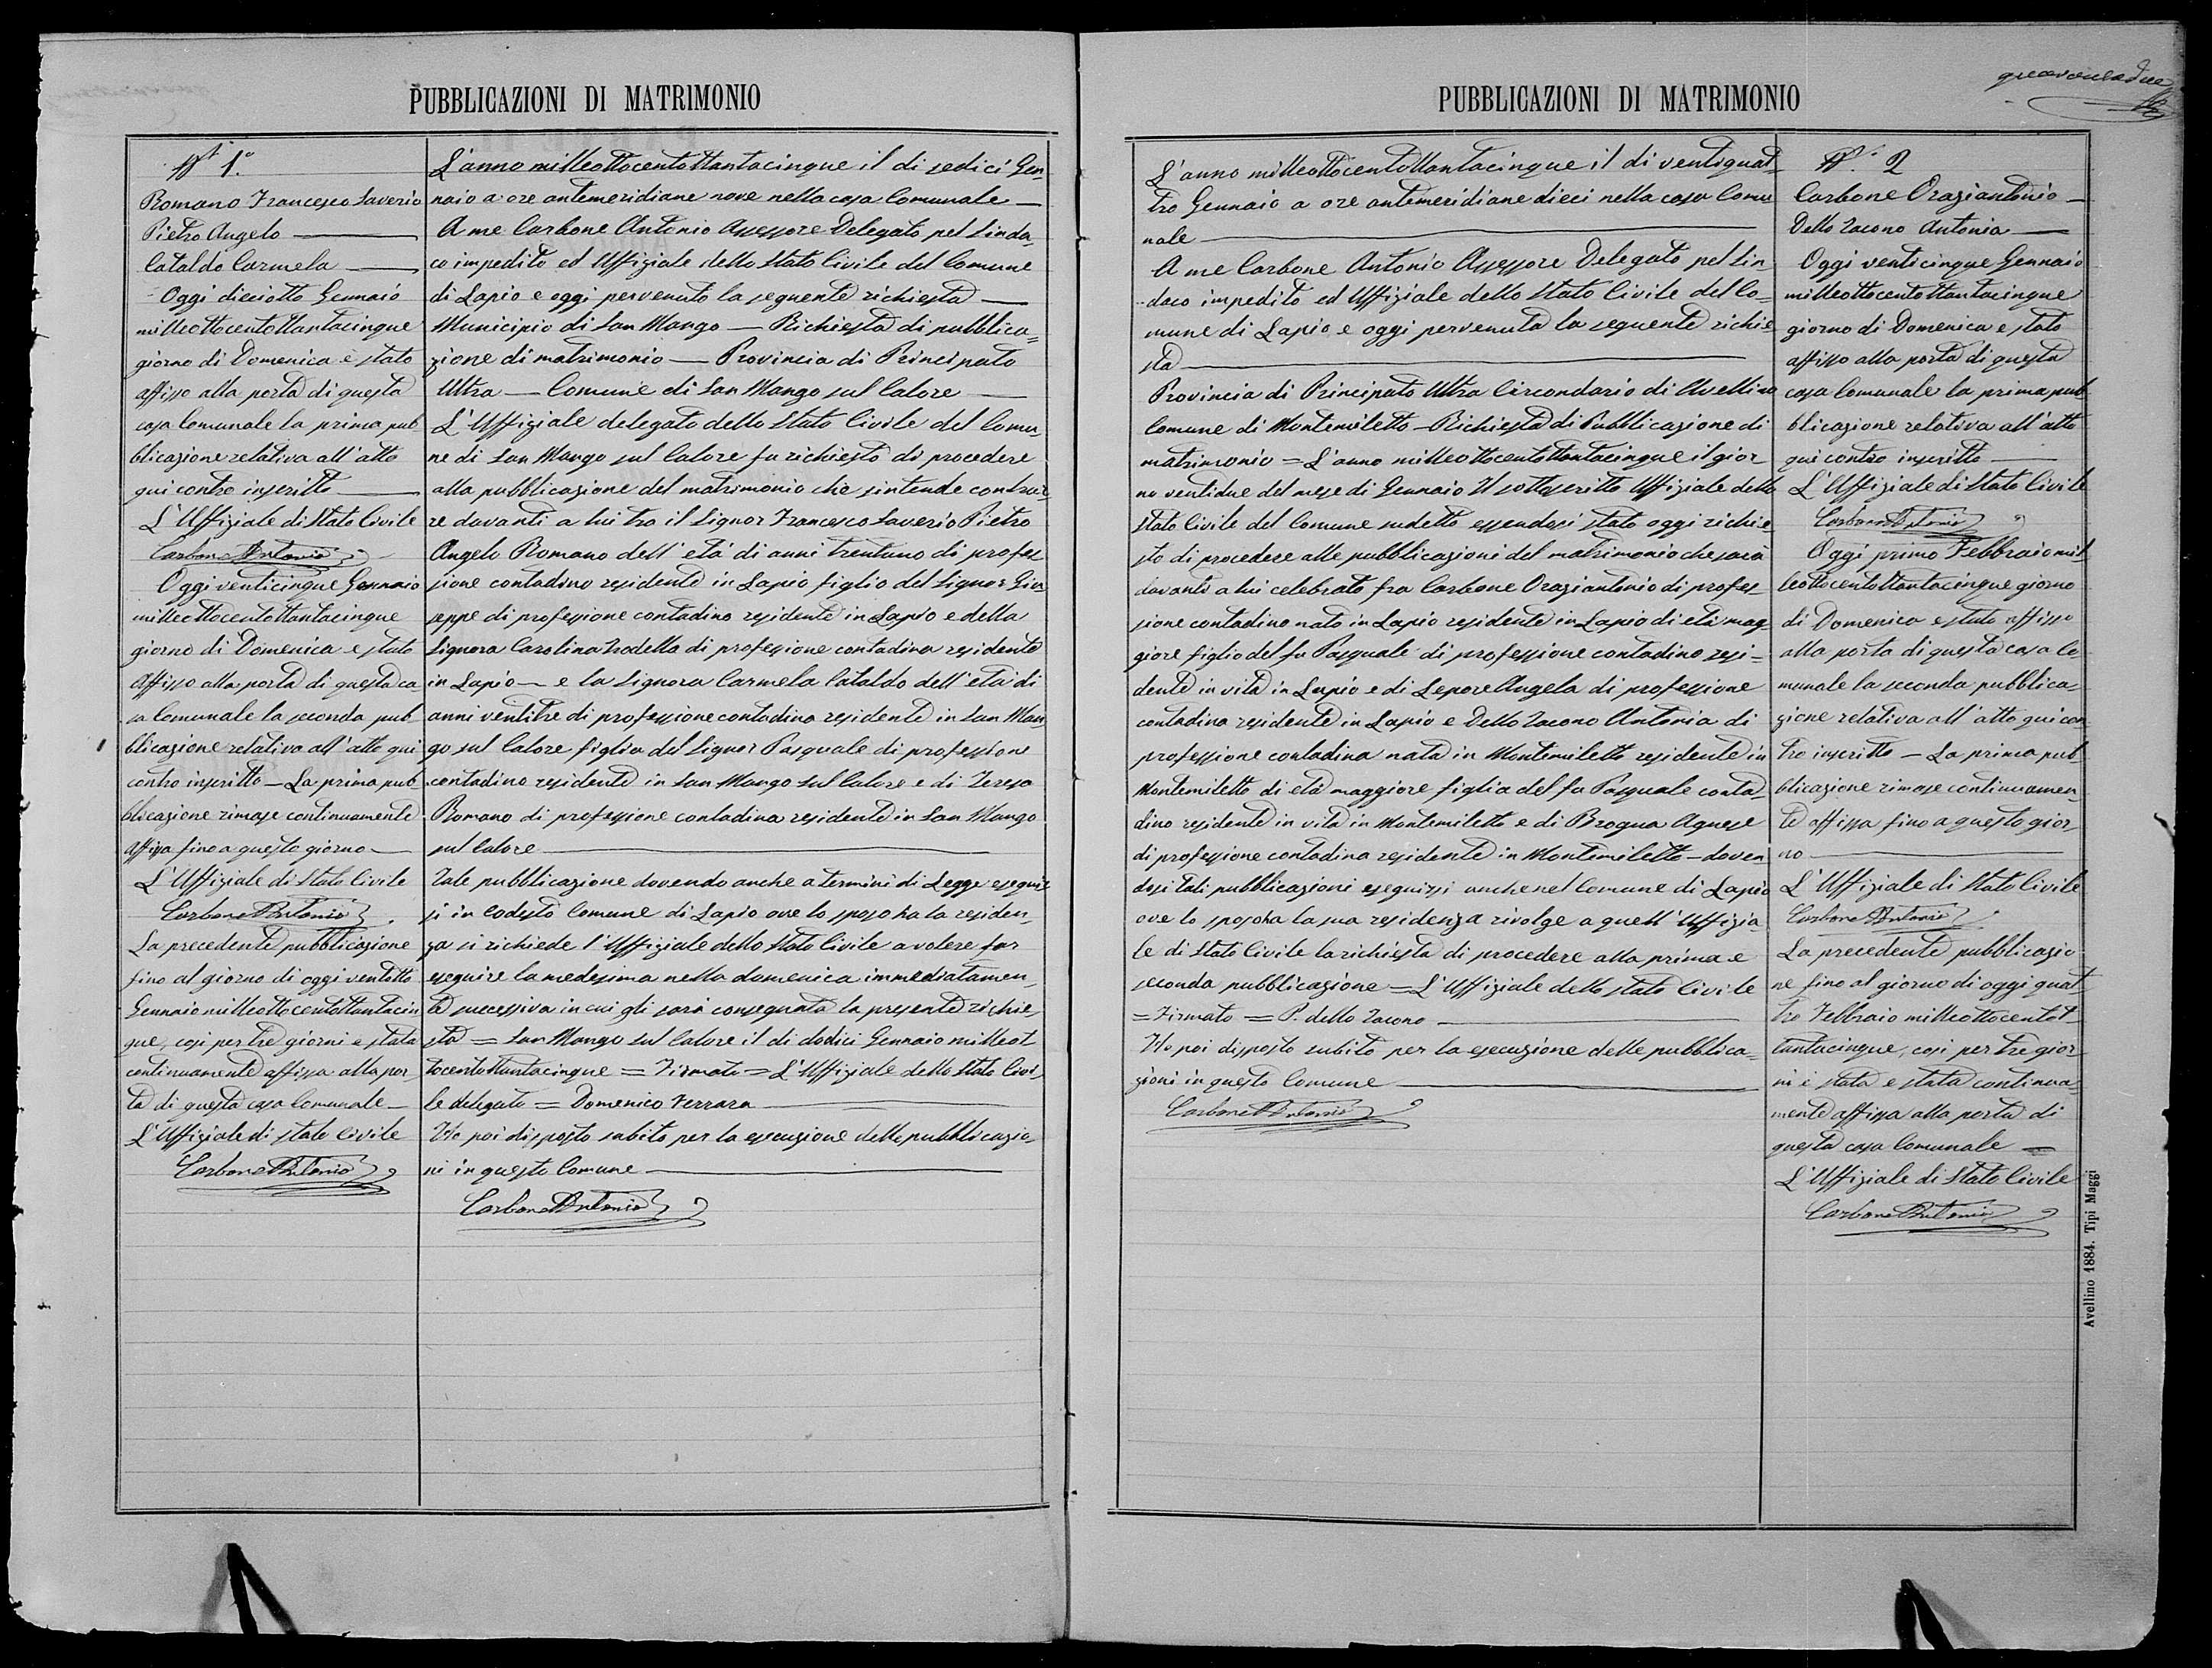 PUBBLICAZIONI DI MATRIMONIO
N.º 1.º
Romano Francesco Saverio
Pietro Angelo
Cataldo Carmela
Oggi dieciotto Gennaio
milleottocentottantacinque
giorno di Domenica è stato
affisso alla porta di questa
casa Comunale la prima pub
blicazione relativa all'atto
qui contro inscritto
L'Uffiziale di Stato Civile
Carbone Antonio
Oggi venticinque Gennaio
milleottocentottantacinque
giorno di Domenica è stato
affisso alla porta di questa ca
sa Comunale la seconda pub
blicazione relativa all'atto qui
contro inscritto — La prima pub
blicazione rimase continuamente
affissa fino a questo giorno
L'Uffiziale di Stato Civile
Carbone Antonio
La precedente pubblicazione
fino al giorno di oggi ventotto
Gennaio milleottocentottantacin
que, così per tre giorni è stata
continuamente affissa alla por
ta di questa casa Comunale
L'Uffiziale di stato civile
Carbone Antonio
L'anno milleottocentottantacinque il di sedici Gen-
naio a ore antemeridiane nove nella casa Comunale
A me Carbone Antonio Assessore Delegato pel Sinda-
co impedito ed Uffiziale dello Stato Civile del Comune
di Lapio e oggi pervenuto la seguente richiesta
Municipio di San Mango — Richiesta di pubblica=
zione di matrimonio — Provincia di Principato
Ultra — Comune di San Mango sul Calore
L'Uffiziale delegato dello Stato Civile del Comu-
ne di San Mango sul Calore fu richiesto di procedere
alla pubblicazione del matrimonio che s'intende contrar-
re davanti a lui tra il Signor Francesco Saverio Pietro
Angelo Romano dell'età di anni trentuno di profes-
sione contadino residente in Lapio figlio del Signor Giu-
seppe di professione contadino residente in Lapio e della
Signora Carolina Trodella di professione contadina residente
in Lapio — e la Signora Carmela Cataldo dell'età di
anni ventitre di professione contadina residente in San Man-
go sul Calore figlia del Signor Pasquale di professione
contadino residente in San Mango sul Calore e di Teresa
Romano di professione contadina residente in San Mango
sul Calore
Tale pubblicazione dovendo anche a termini di Legge eseguir
si in codesto Comune di Lapio ove lo sposo ha la residen-
za si richiede l'Uffiziale dello Stato Civile a volere far
eseguire la medesima nella domenica immediatamen-
te successiva in cui gli sarà consegnata la presente richie-
sta = San Mango sul Calore il di dodici Gennaio milleot
tocentottantacinque = Firmato = L'Uffiziale dello Stato Civi-
le delegato = Domenico Ferrara
Ho poi disposto subito per la esecuzione delle pubblicazio-
ni in questo Comune
Carbone Antonio
quarantadue
PUBBLICAZIONI DI MATRIMONIO
L'anno milleottocentottantacinque il di ventiquat-
tro Gennaio a ore antemeridiane dieci nella casa Comu
nale
A me Carbone Antonio Assessore Delegato pel Sin-
daco impedito ed Uffiziale dello Stato Civile del Co-
mune di Lapio e oggi pervenuta la seguente richie
sta
Provincia di Principato Ultra Circondario di Avellino
Comune di Montemiletto — Richiesta di Pubblicazione di
matrimonio = L'anno milleottocentottantacinque il gior
no ventidue del mese di Gennaio Il sottoscritto Uffiziale dello
Stato Civile del Comune sudetto essendosi stato oggi richie
sto di procedere alle pubblicazioni del matrimonio che sarà
davanti a lui celebrato fra Carbone Oraziantonio di profes-
sione contadino nato in Lapio residente in Lapio di età mag-
giore figlio del fu Pasquale di professione contadino resi=
dente in vita in Lapio e di Lepore Angela di professione
contadina residente in Lapio e Dello Iacono Antonia di
professione contadina nata in Montemiletto residente in
Montemiletto di età maggiore figlia del fu Pasquale conta-
dino residente in vita in Montemiletto e di Brogna Agnese
di professione contadina residente in Montemiletto — doven
dosi tali pubblicazioni eseguirsi anche nel Comune di Lapio
ove lo sposo ha la sua residenza rivolge a quell'Uffizia
le di Stato Civile la richiesta di procedere alla prima e
seconda pubblicazione = L'Uffiziale dello stato Civile
= Firmato = P. dello Iacono
Ho poi disposto subito per la esecuzione delle pubblica-
zioni in questo Comune
Carbone Antonio
N.º 2
Carbone Oraziantonio
Dello Iacono Antonia
Oggi venticinque Gennaio
milleottocentottantacinque
giorno di Domenica è stato
affisso alla porta di questa
casa Comunale la prima pub
blicazione relativa all'atto
qui contro inscritto
L'Uffiziale di Stato Civile
Carbone Antonio
Oggi primo Febbraio mil
leottocentottantacinque giorno
di Domenica è stato affisso
alla porta di questa casa Co-
munale la seconda pubblica-
zione relativa all'atto qui con
tro inscritto — La prima pub
blicazione rimase continuamen-
te affissa fino a questo gior
no
L'Uffiziale di Stato Civile
Carbone Antonio
La precedente pubblicazio
ne fino al giorno di oggi quat
tro Febbraio milleottocentot-
tantacinque, così per tre gior
ni è stata e stata continua-
mente affissa alla porta di
questa casa Comunale
L'Uffiziale di Stato Civile
Carbone Antonio
Avellino 1884. Tipi Maggi